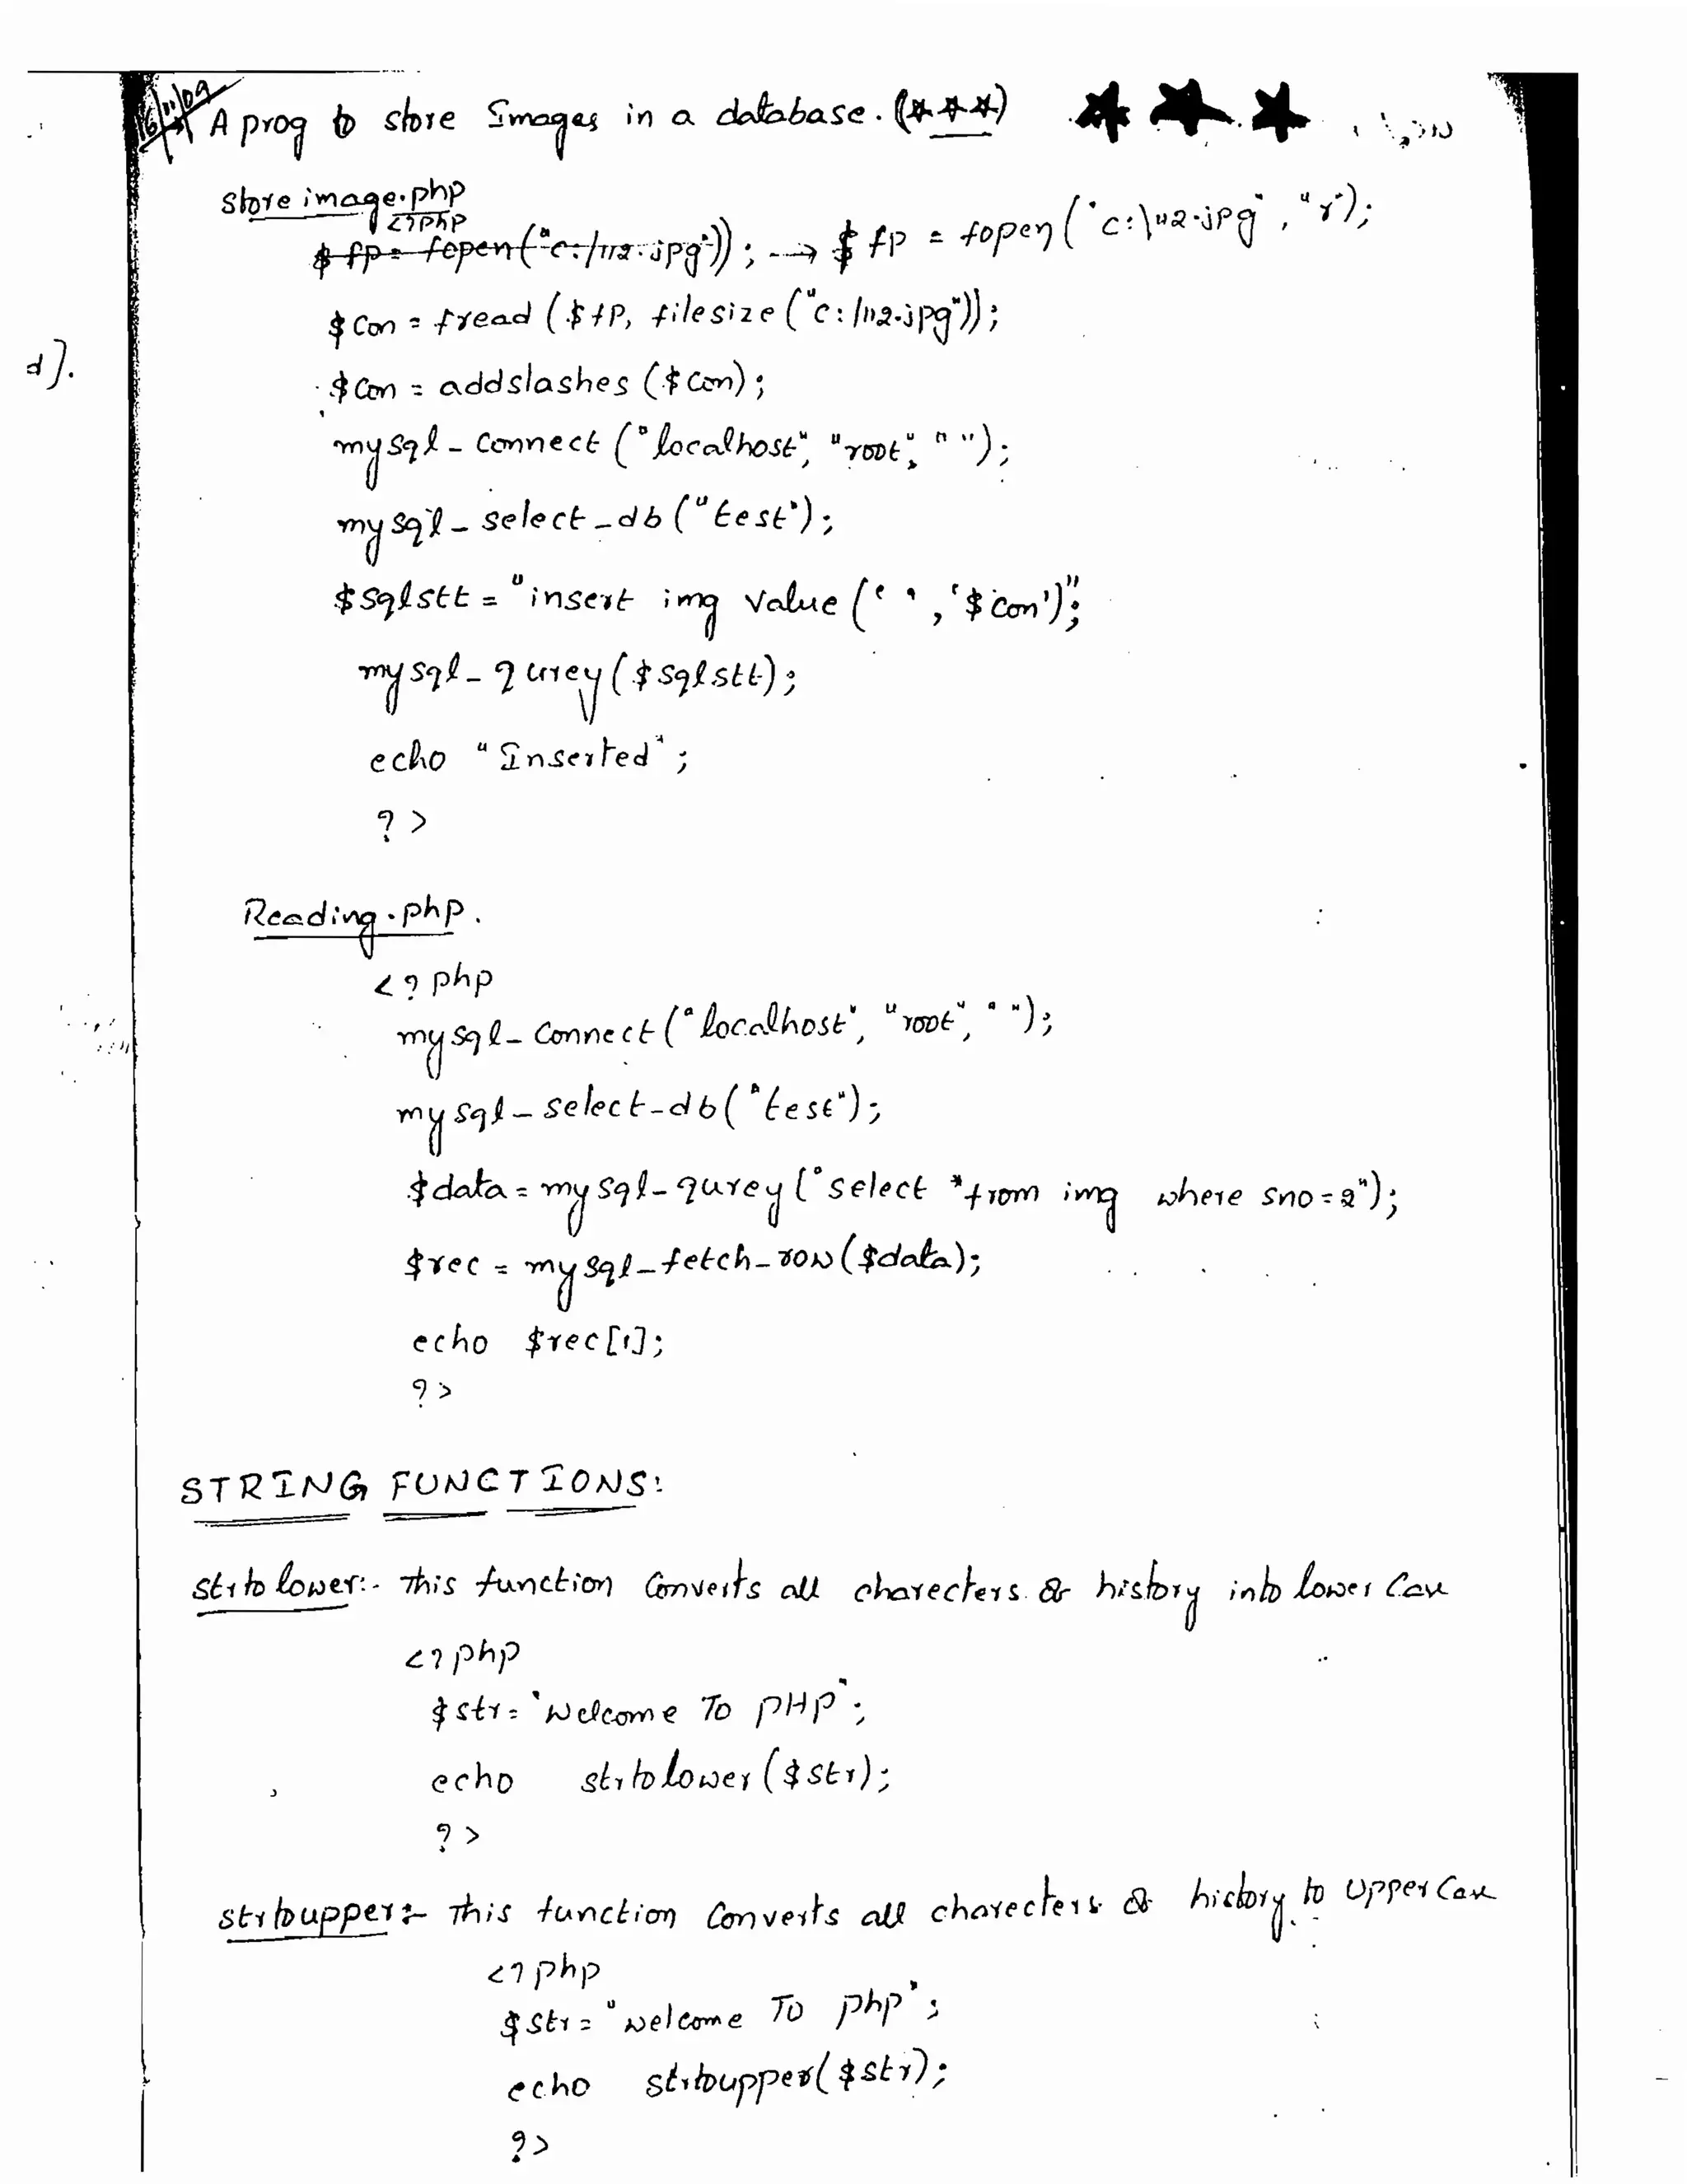 16/11/09
A prog to store Images in a database. (***) ★ ★ ★
store image.php
<?php
$fp = fopen("c:/112.jpg")); → $fp = fopen("c:\112.jpg", "r");
$con = fread ($fp, filesize ("c:/112.jpg"));
d].
$con = addslashes ($con);
mysql_connect ("localhost", "root", " ");
mysql_select_db ("test");
$sqlstt = "insert img value (' ', '$con')";
mysql_qurey ($sqlstt);
echo "Inserted";
?>
Reading.php.
<?php
mysql_connect ("localhost", "root", " ");
mysql_select_db ("test");
$data = mysql_qurey ("select *from img where sno=2");
$rec = mysql_fetch_row ($data);
echo $rec[1];
?>
STRING FUNCTIONS:
strtolower:- This function Converts all charecters & history into lower Case
<?php
$str = "Welcome To PHP";
echo strtolower ($str);
?>
strtoupper:- This function Converts all charecters & history to Upper Case
<?php
$str = "welcome To php";
echo strtoupper($str);
?>